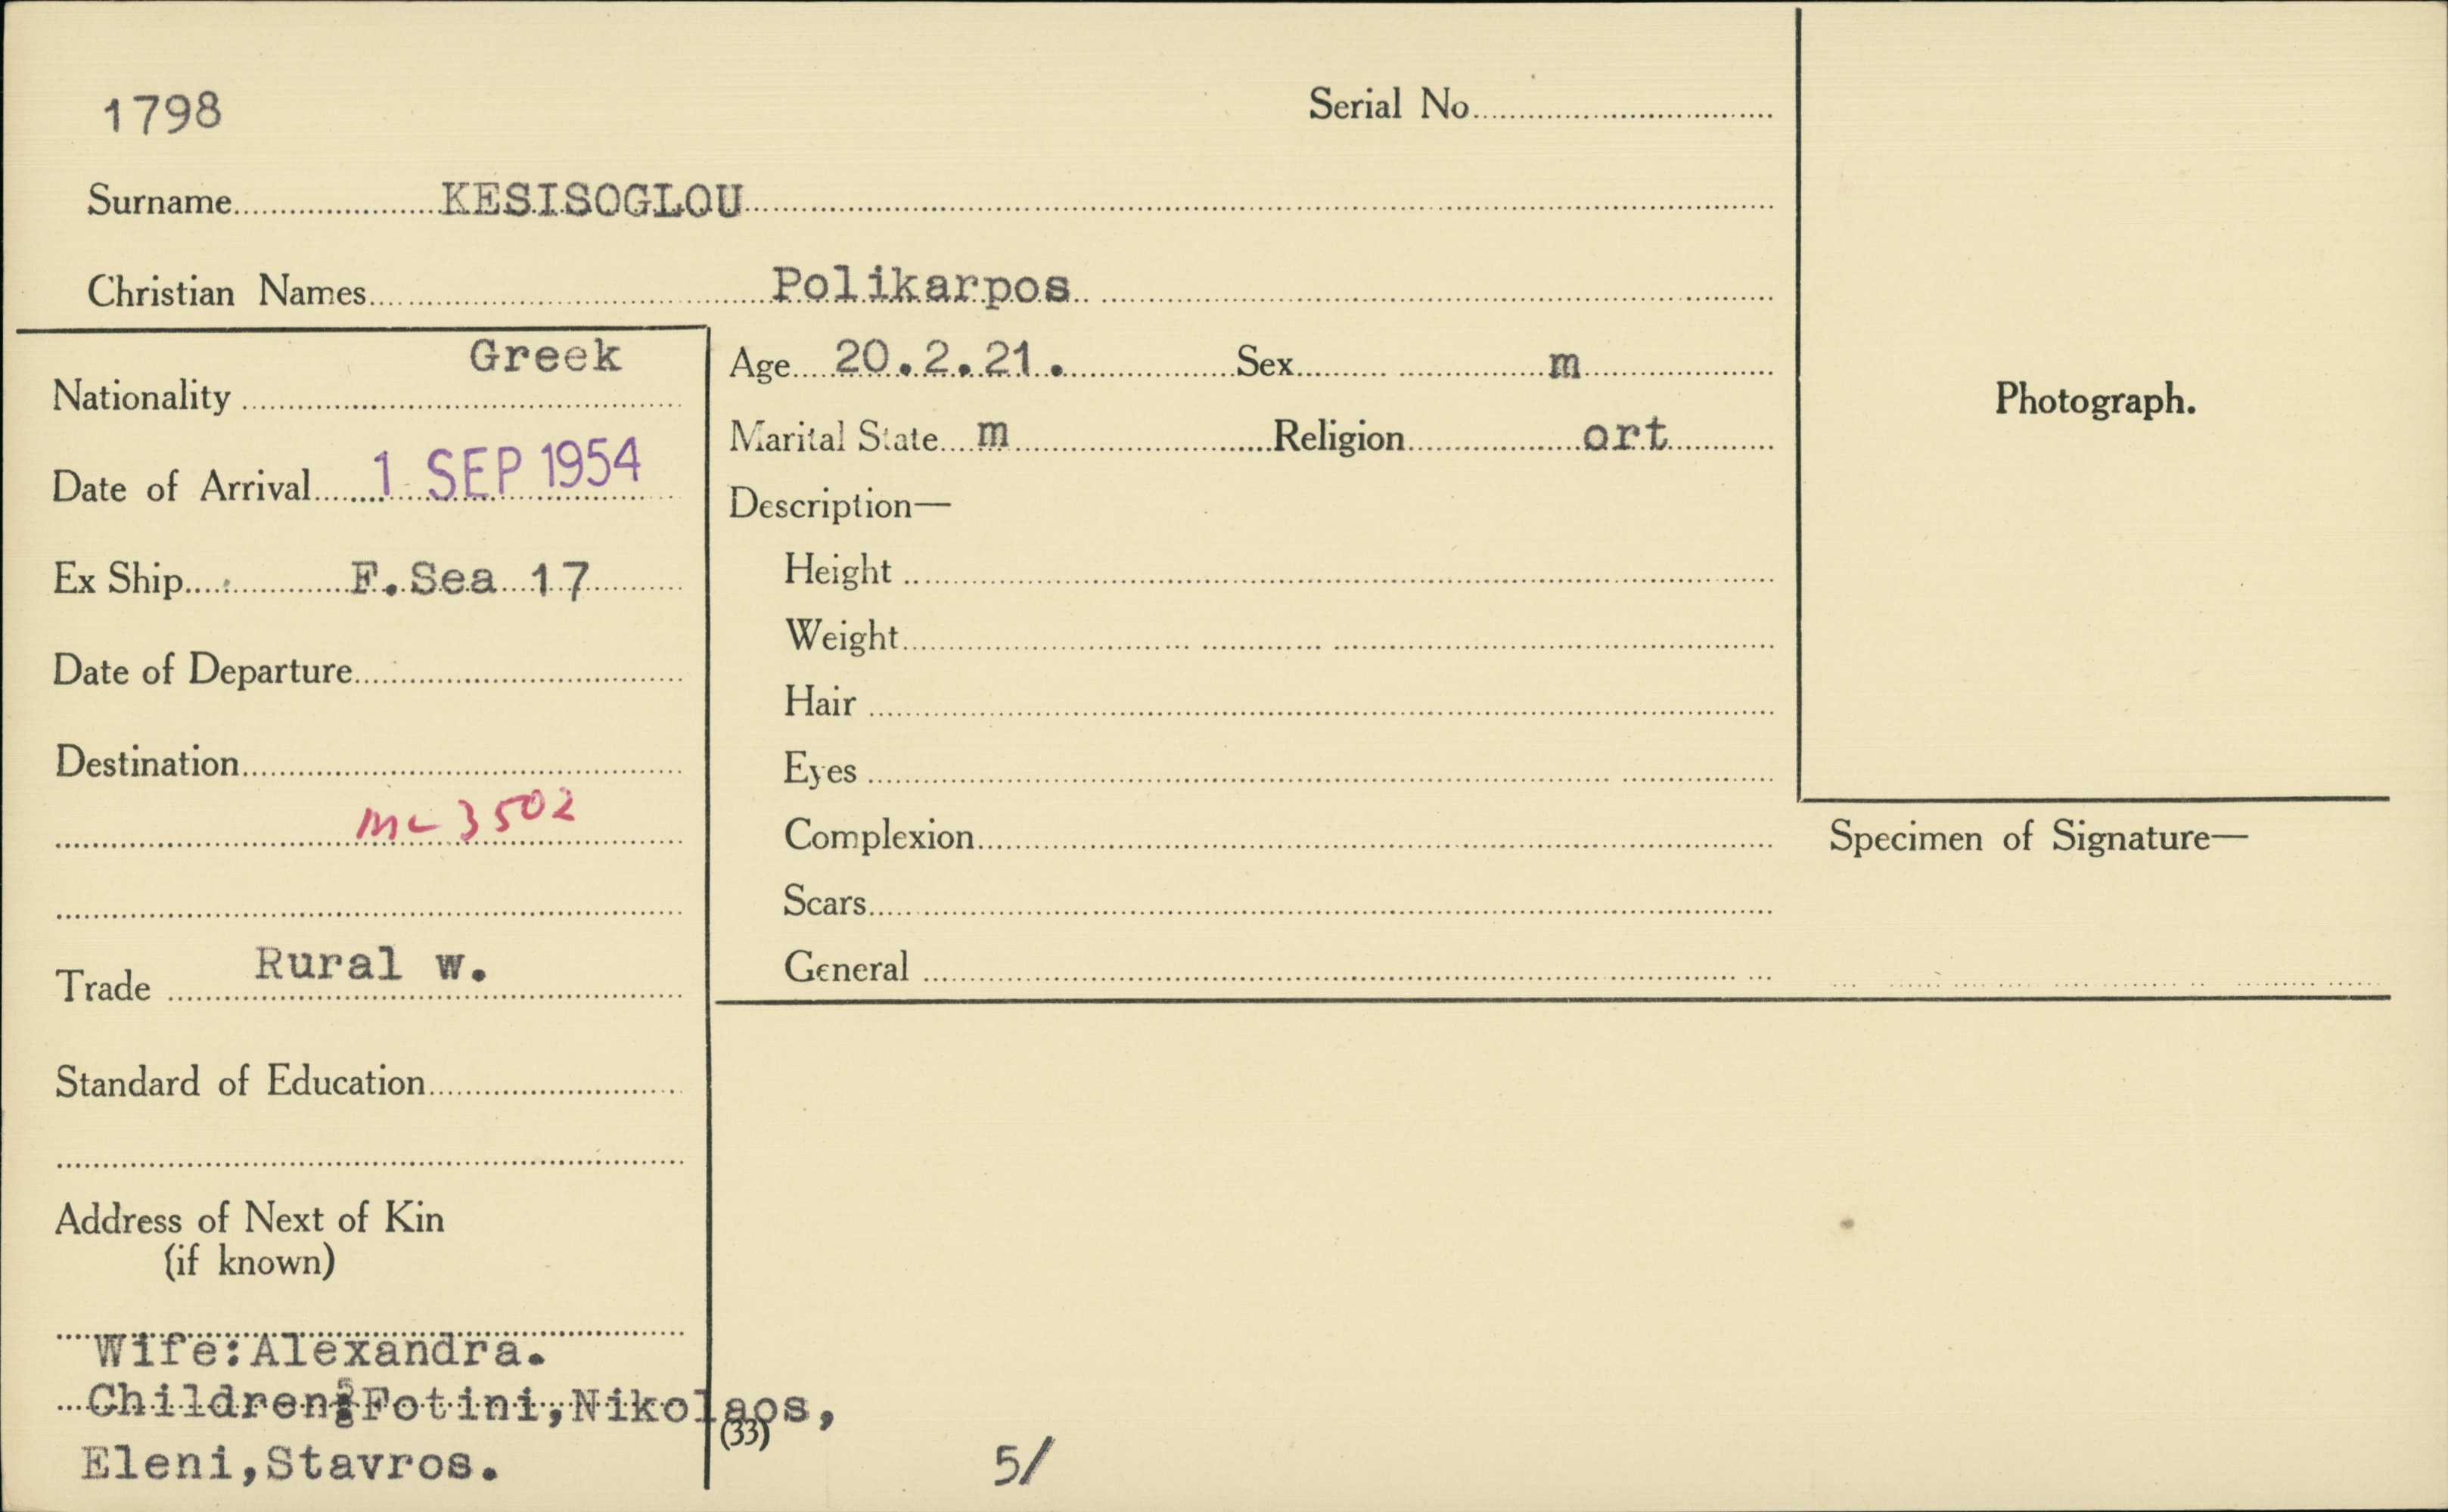 1798
Serial No.
Surname KESISOGLOU
Christian Names Polikarpos
Nationality Greek
Date of Arrival 1 SEP 1954
Ex Ship F.Sea 17
Date of Departure
Destination
3502
Trade Rural w.
Standard of Education
Address of Next of Kin
(if known)
Wife:Alexandra.
Children:Fotini,Nikolaos,
Eleni,Stavros.
Age 20.2.21. Sex m
Marital State m Religion ort
Description—
Height
Weight
Hair
Eyes
Complexion
Scars
General
(33)
5/
Photograph.
Specimen of Signature—